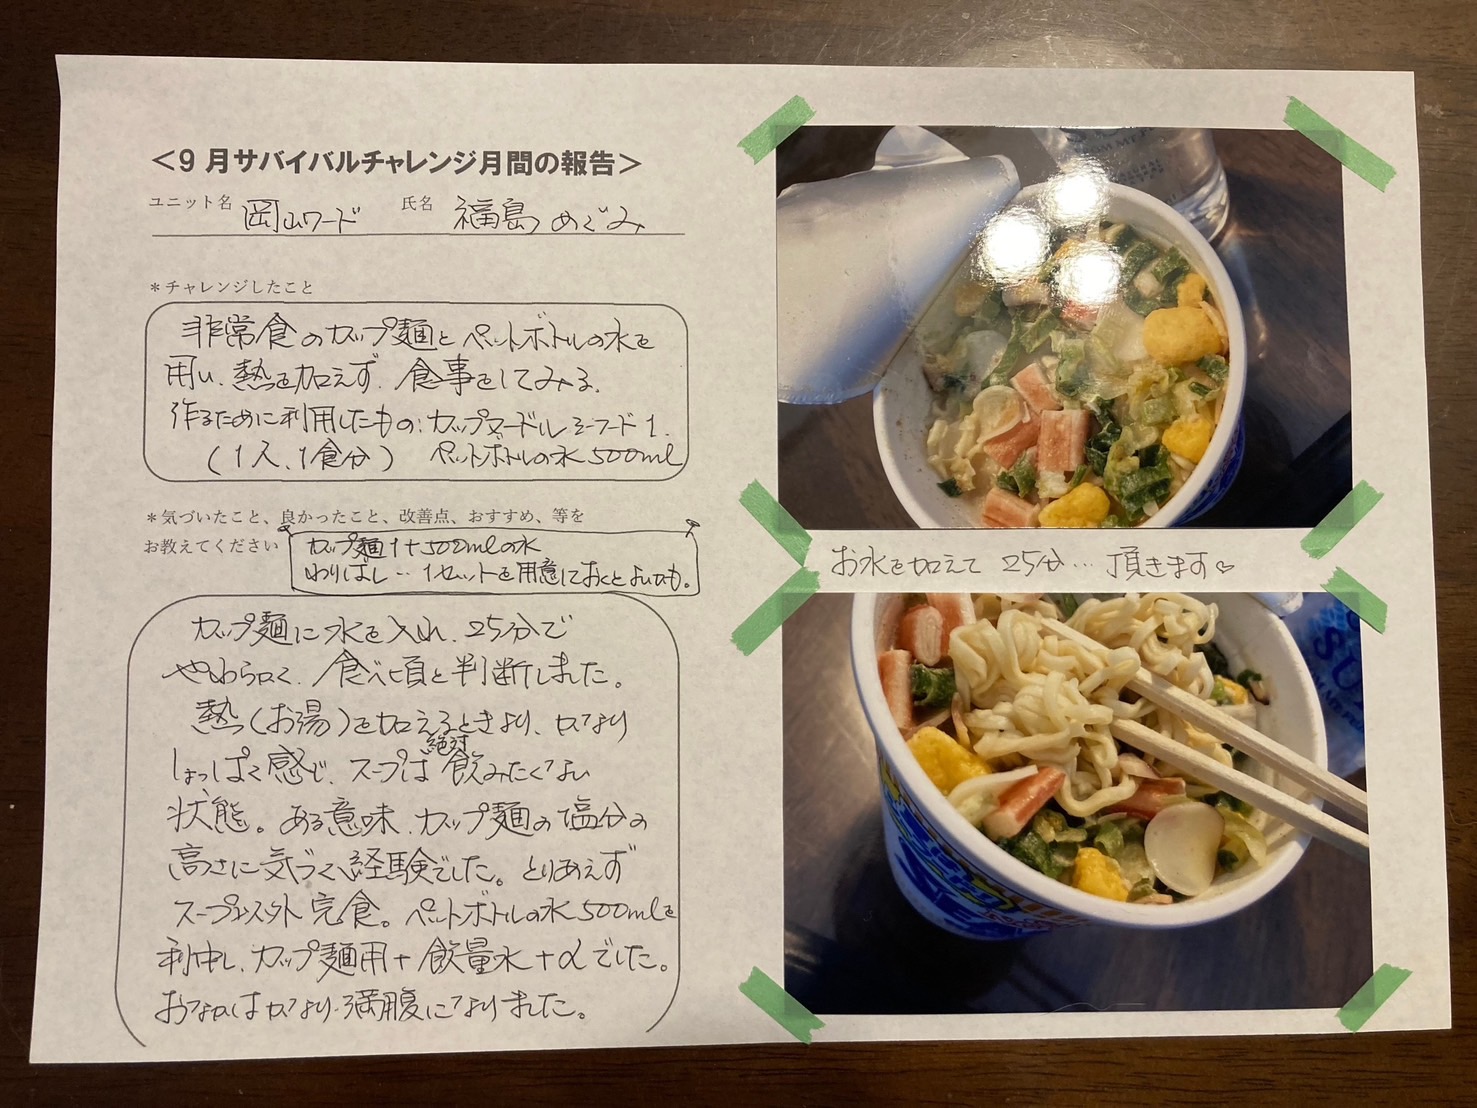 ＜9月サバイバルチャレンジ月間の報告＞
ユニット名 岡山ワード 氏名 福島めぐみ
＊チャレンジしたこと
非常食のカップ麺とペットボトルの水を
用い、熱を加えず、食事をしてみる。
作るために利用したもの：カップヌードルシーフード1.
(1人、1食分) ペットボトルの水500ml
＊気づいたこと、良かったこと、改善点、おすすめ、等を
お教えてください
カップ麺1+500mlの水
わりばし…1セットを用意しておくとよいかも。
カップ麺に水を入れ、25分で
やわらかく、食べ頃と判断しました。
熱(お湯)を加えるときより、かなり
しょっぱく感じ、スープは絶対飲みたくない
状態。ある意味、カップ麺の塩分の
高さに気づく経験でした。とりあえず
スープ以外完食。ペットボトルの水500mlを
利用し、カップ麺用+飲量水+αでした。
おなかはかなり満腹になりました。
お水を加えて 25分… 頂きます♡